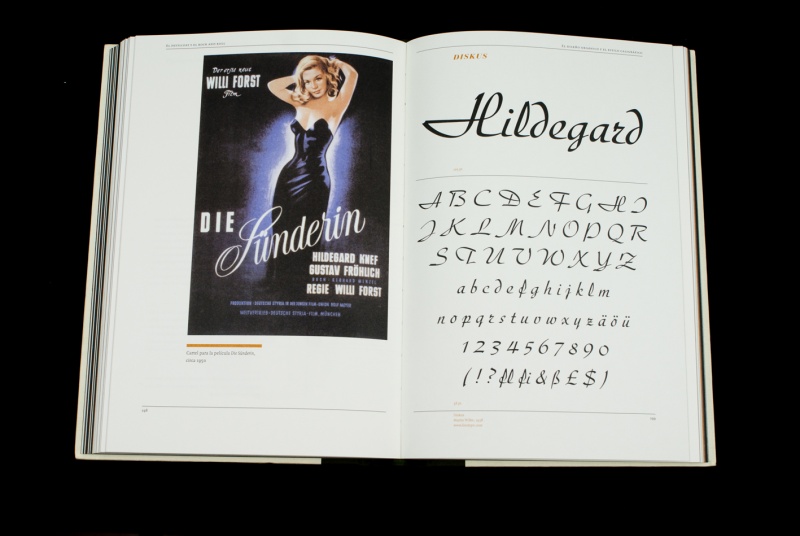 Der erste neue
WILLI FORST
Film
DIE Sünderin
HILDEGARD KNEF
GUSTAV FRÖHLICH
BUCH · GERHARD MENZEL
REGIE WILLI FORST
Cartel para la película Die Sünderin,
circa 1950
DISKUS
Hildegard
A B C D E F G H I
J K L M N O P Q R
S T U V W X Y Z
a b c d e f g h i j k l m
n o p q r s t u v w x y z ä ö ü
1 2 3 4 5 6 7 8 9 0
( ! ? fl fi & ß £ $ )